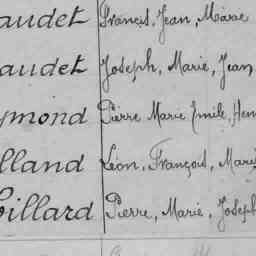 audet Francis, Jean, Marie
audet Joseph, Marie, Jean
ymond Pierre Marie Emile, Hen
lland Léon, François, Marie
illard Pierre, Marie, Joseph